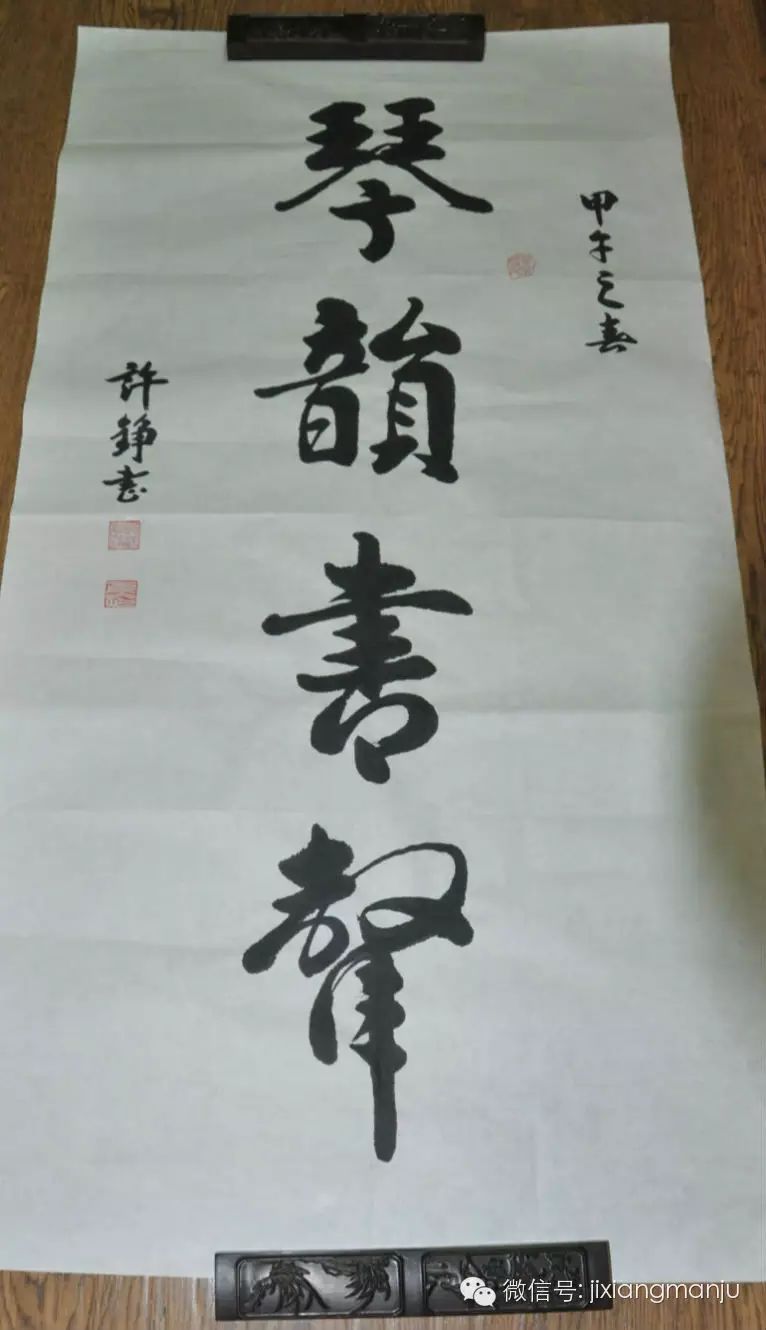 甲午之春
琴韻書聲
許錚書
微信号: jixiangmanju